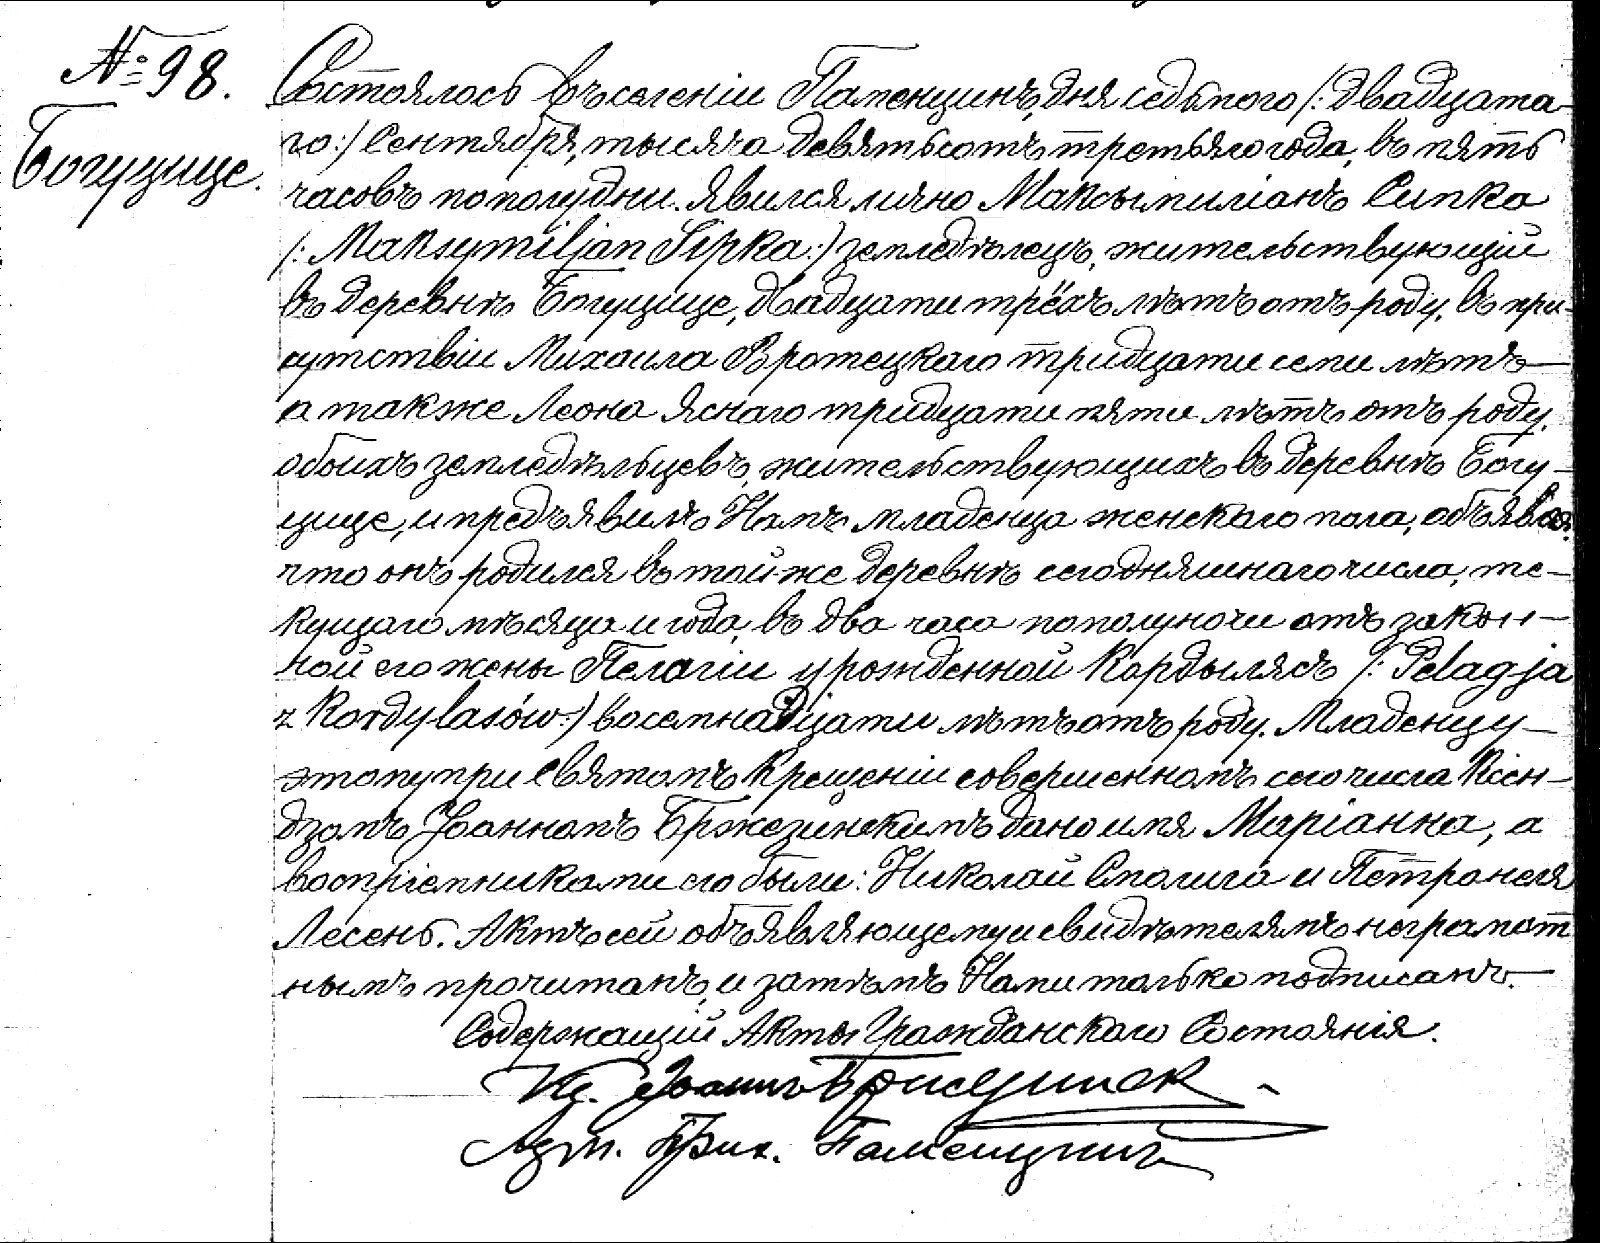 № 98.
Богуцице.
Состоялось въ селеніи Паменцинъ, дня седьмого /: двадцата-
го :/ Сентября, тысяча девятьсотъ третьяго года, въ пять
часовъ пополудни. Явился лично Максымиліанъ Сипка
/: Maksymiljan Sipka :/ земледѣлецъ, жительствующій
въ деревнѣ Богуцице, двадцати трёхъ лѣтъ отъ роду, въ при-
сутствіи Михаила Вротецкаго тридцати семи лѣтъ
а также Леона Яснаго тридцати пяти лѣтъ отъ роду,
обоихъ земледѣльцевъ, жительствующихъ въ деревнѣ Богу-
цице, и предъявилъ Намъ младенца женскаго пола, объявляя,
что онъ родился въ той-же деревнѣ сегодняшнаго числа, те-
кущаго мѣсяца и года, въ два часа пополуночи отъ закон-
ной его жены Пелагіи урожденной Кордылясъ /: Pelagja
z Kordylasów :/ восемнадцати лѣтъ отъ роду. Младенцу
этому при Святомъ Крещеніи совершенномъ сего числа Ксен-
дзомъ Іоанномъ Бржезинскимъ дано имя Маріанна, а
воспріемниками его были: Николай Смолига и Петронеля
Лесень. Актъ сей объявляющему и свидѣтелямъ неграмот
нымъ прочитанъ, и затѣмъ Нами только подписанъ.
Содержащій Акты Гражданскаго Состоянія.
Кс. Іоаннъ
Адм. Прих. Паменцинъ